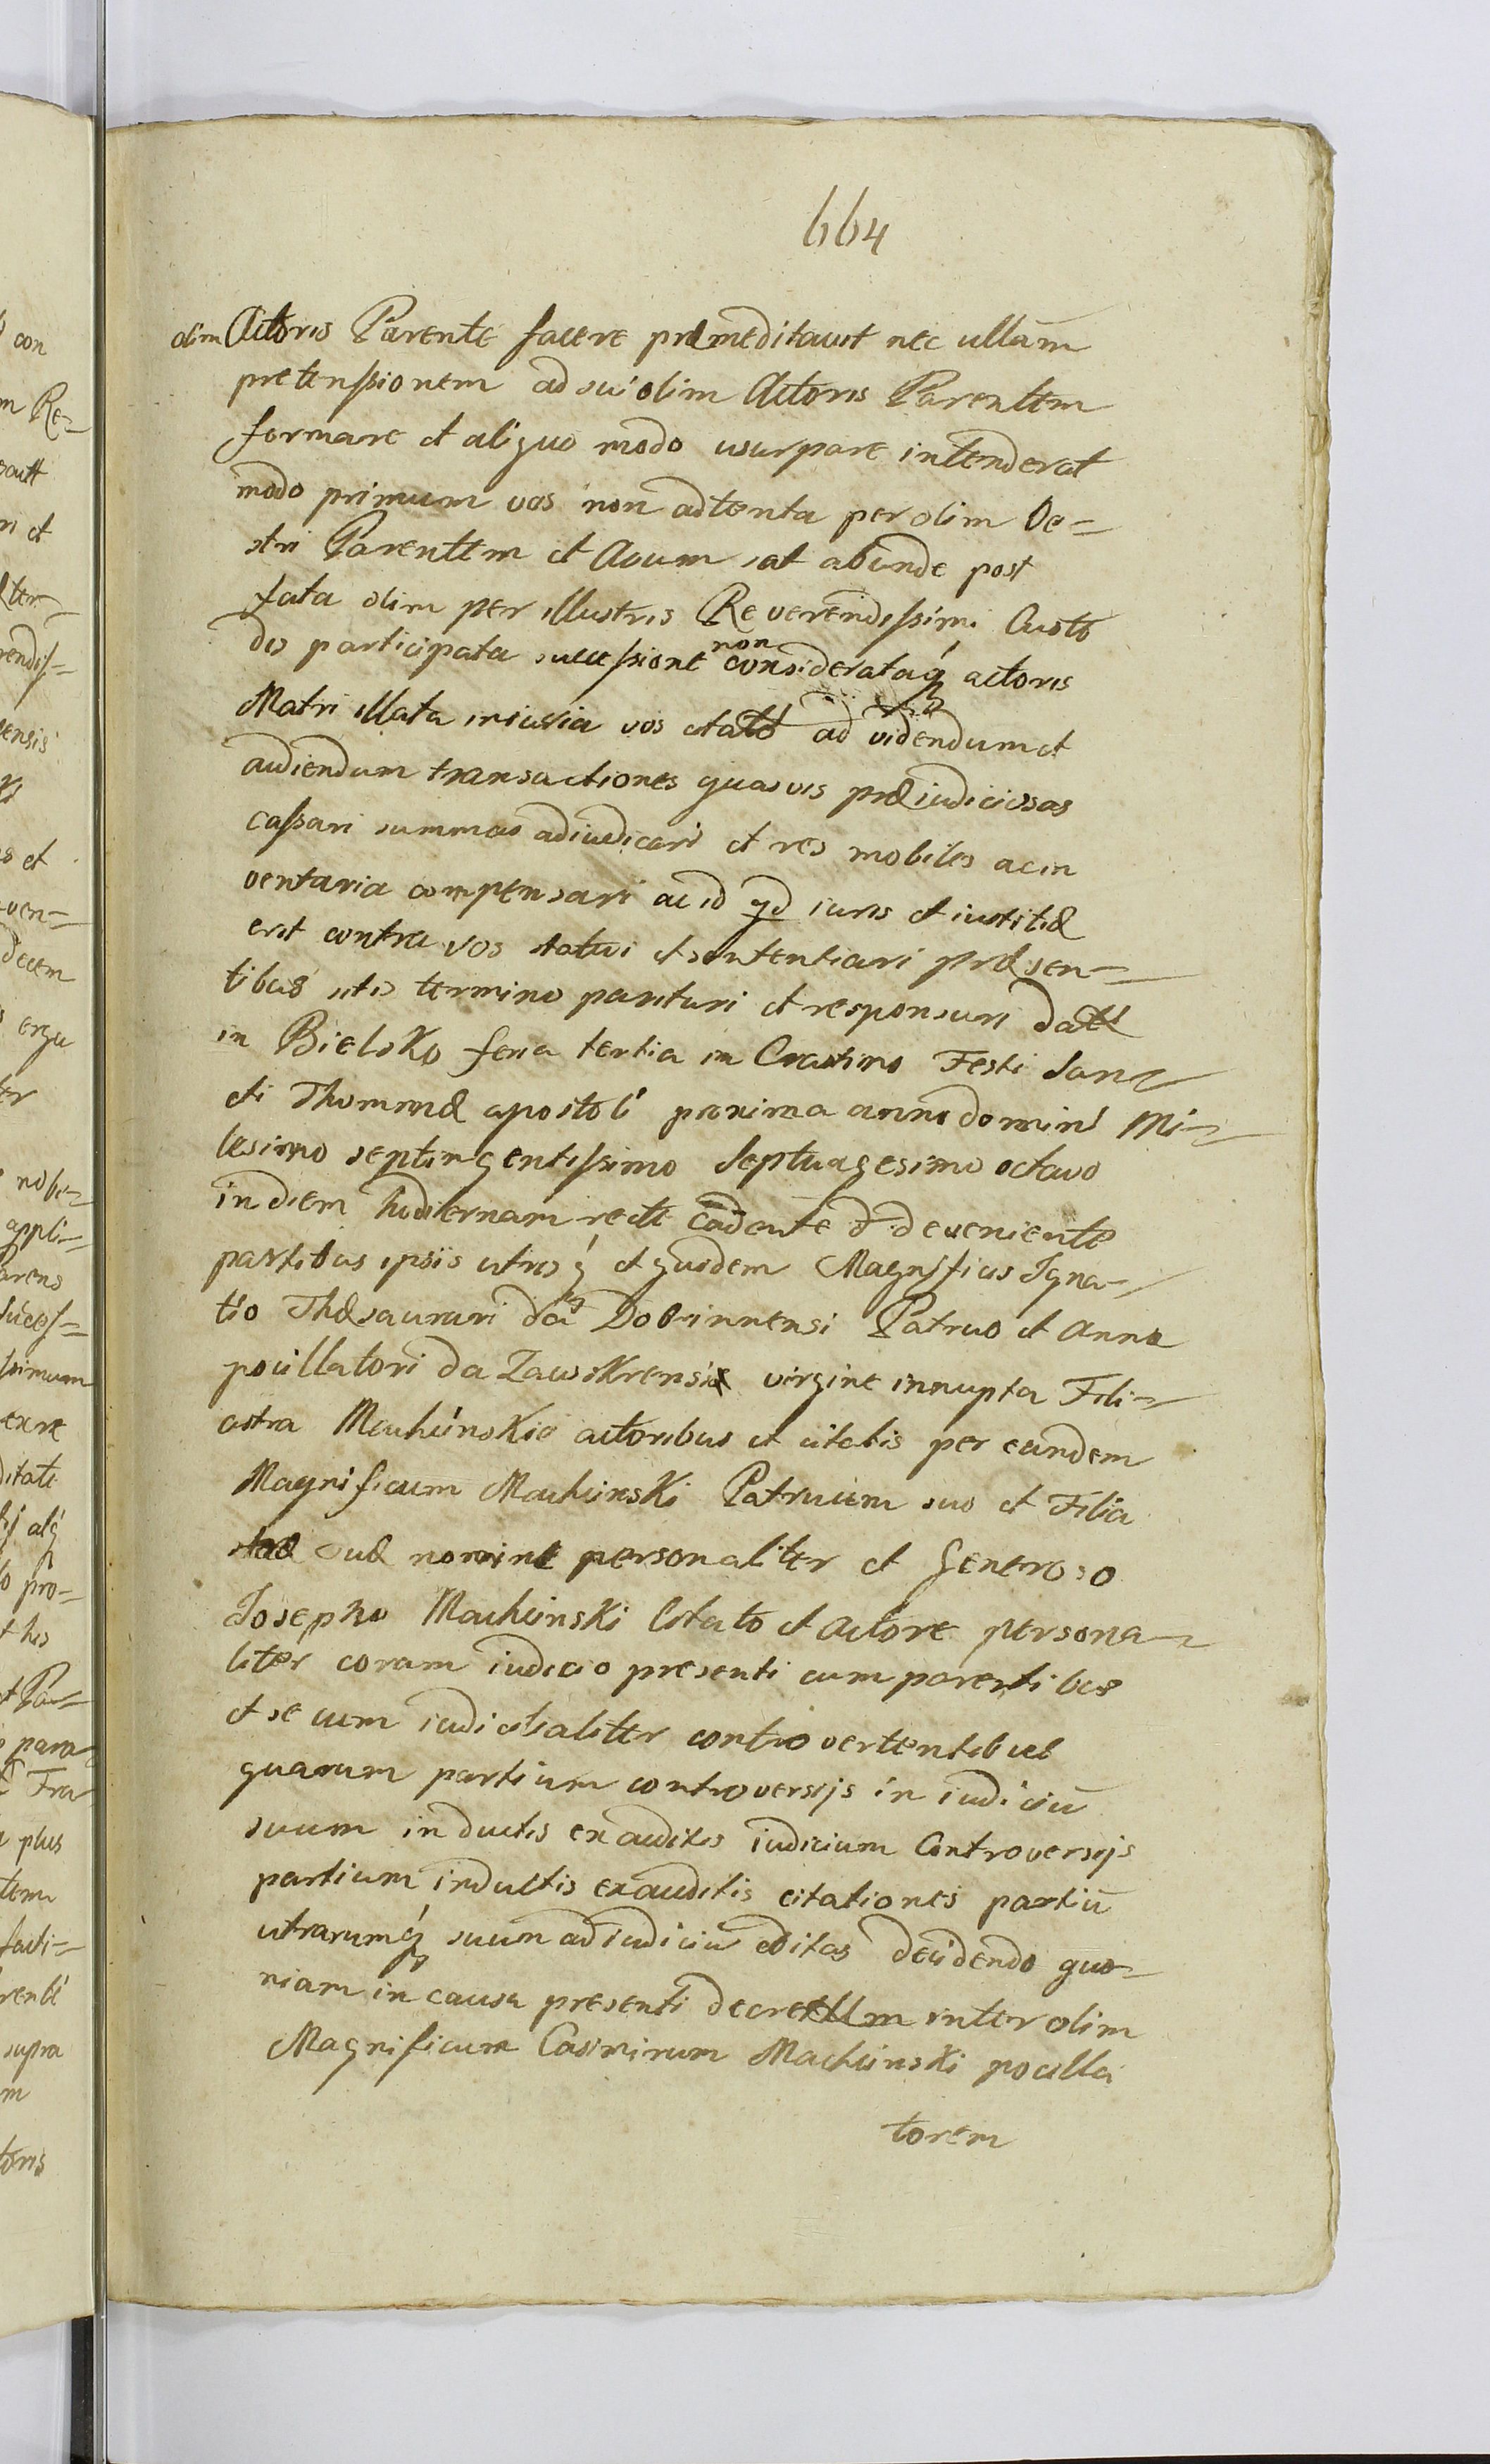 664
olim Actoris Parente facere præmeditavit nec ullam
pretensionem ad sui olim Actoris Parentem
formare et aliquo modo usurpare intenderat
modo primum vos non adtenta per olim Ve=
stri Parentem et Avum sat abunde post
fata olim per illustris Reverendissimi Custo
dis participata successione non consideratáq́ actoris
Matri illata iniuria vos citato ad videndum et
audiendum transactiones quasvis præiudiciosas
cassari summas adiudicari et res mobiles ac in
ventaria compensari ac id qd iuris et iustitiæ
erit contra vos statui et sententiari præsen=
tibus sitis termino parituri et responsuri Datt
in Bielsko feria tertia in Crastino Festi San=
cti Thommæ apostoli proxima anno domini Mi=
lesimo septingentissimo Septuagesimo octavo
in diem hodiernam recte cadente & deveniente
partibus ipsis utrisq́ et quidem Magnificis Igna=
tio Thæsaurari da Dobrinnensi Patruo et Anna
pocillatori da Zawskrensi virgine innupta Fili=
astra Machcinskie actoribus et citatis per eundem
Magnificum Machcinski Patruum suo et Filia
stræ suæ nomine personaliter et Generoso
Josepho Machcinski Citato et Actore persona=
liter coram iudicio presenti cumparentibus
et se cum iudicialiter controvertentibus
quarum partium controversijs in iudiciū
suum inductis exauditis iudicium Controversijs
partium indultis exauditis citationes partiū
utrarumq́ suum ad iudiciū editas decidendo quo=
niam in causa presenti decretum inter olim
Magnificum Casimirum Machcinski pocilla
torem